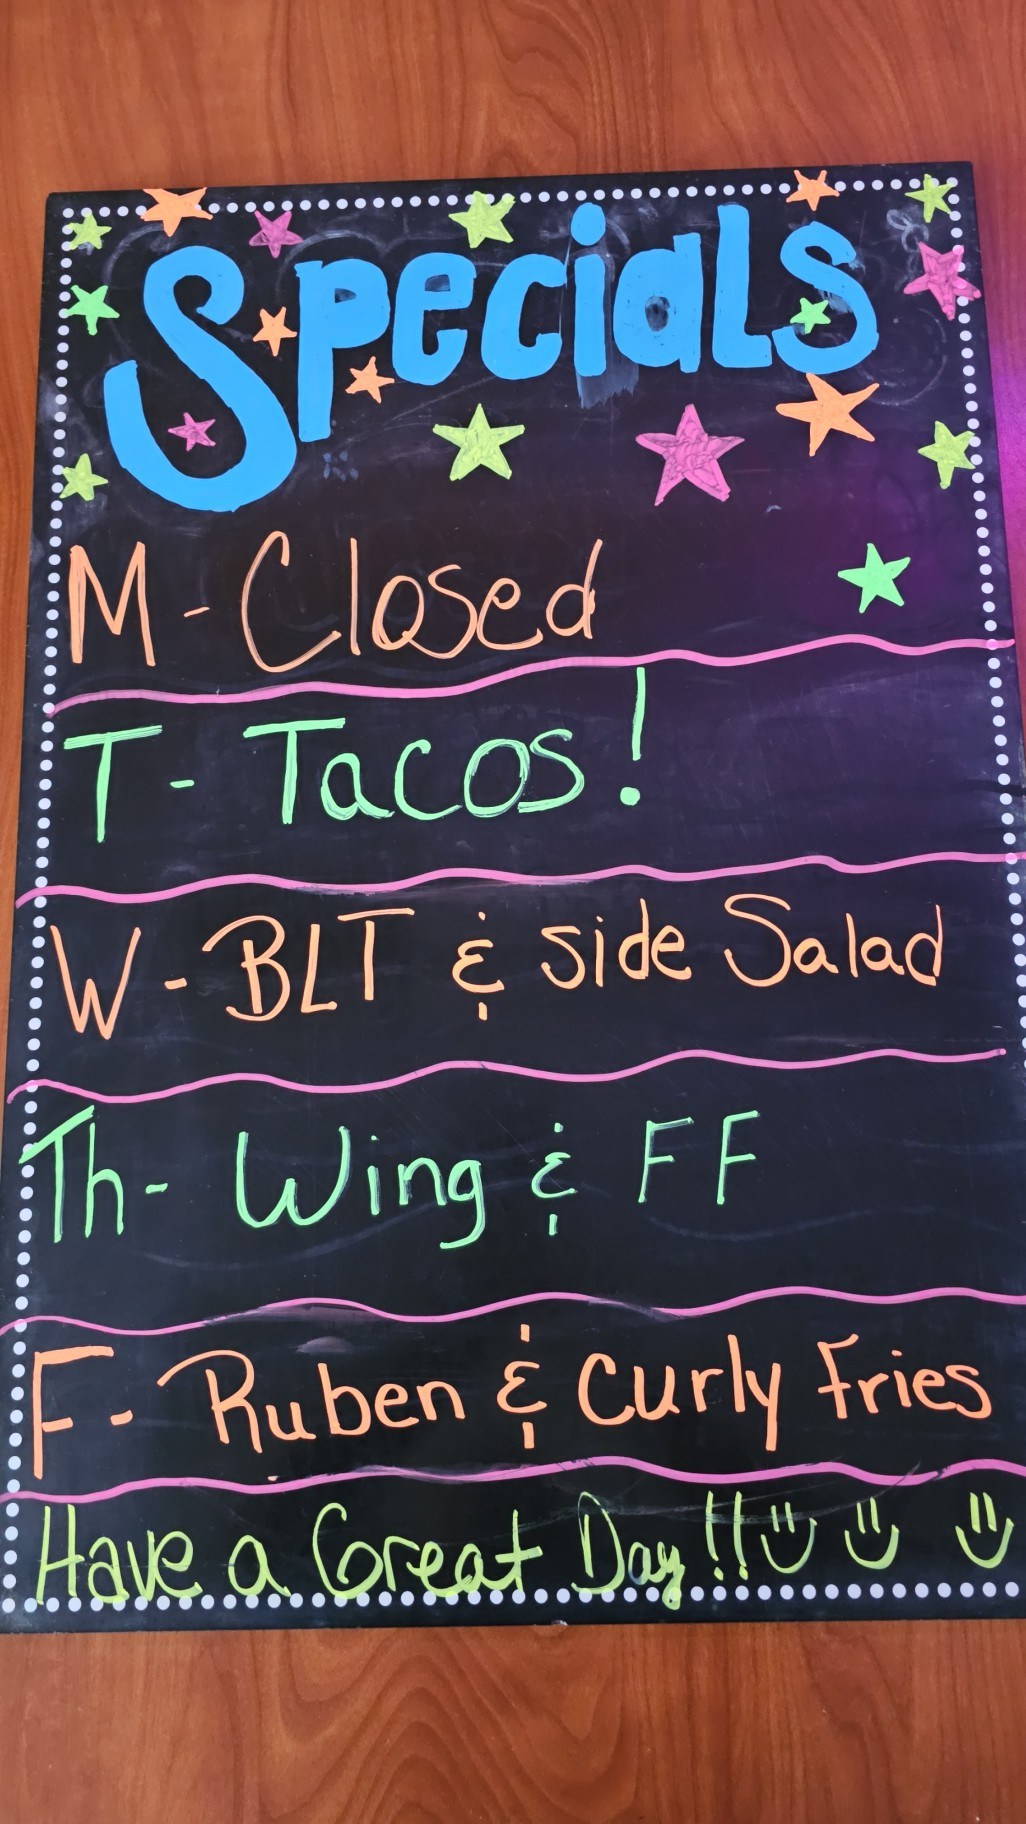 Specials
M - Closed
T - Tacos!
W - BLT & side Salad
Th - Wing & FF
F - Ruben & Curly Fries
Have a Great Day!!